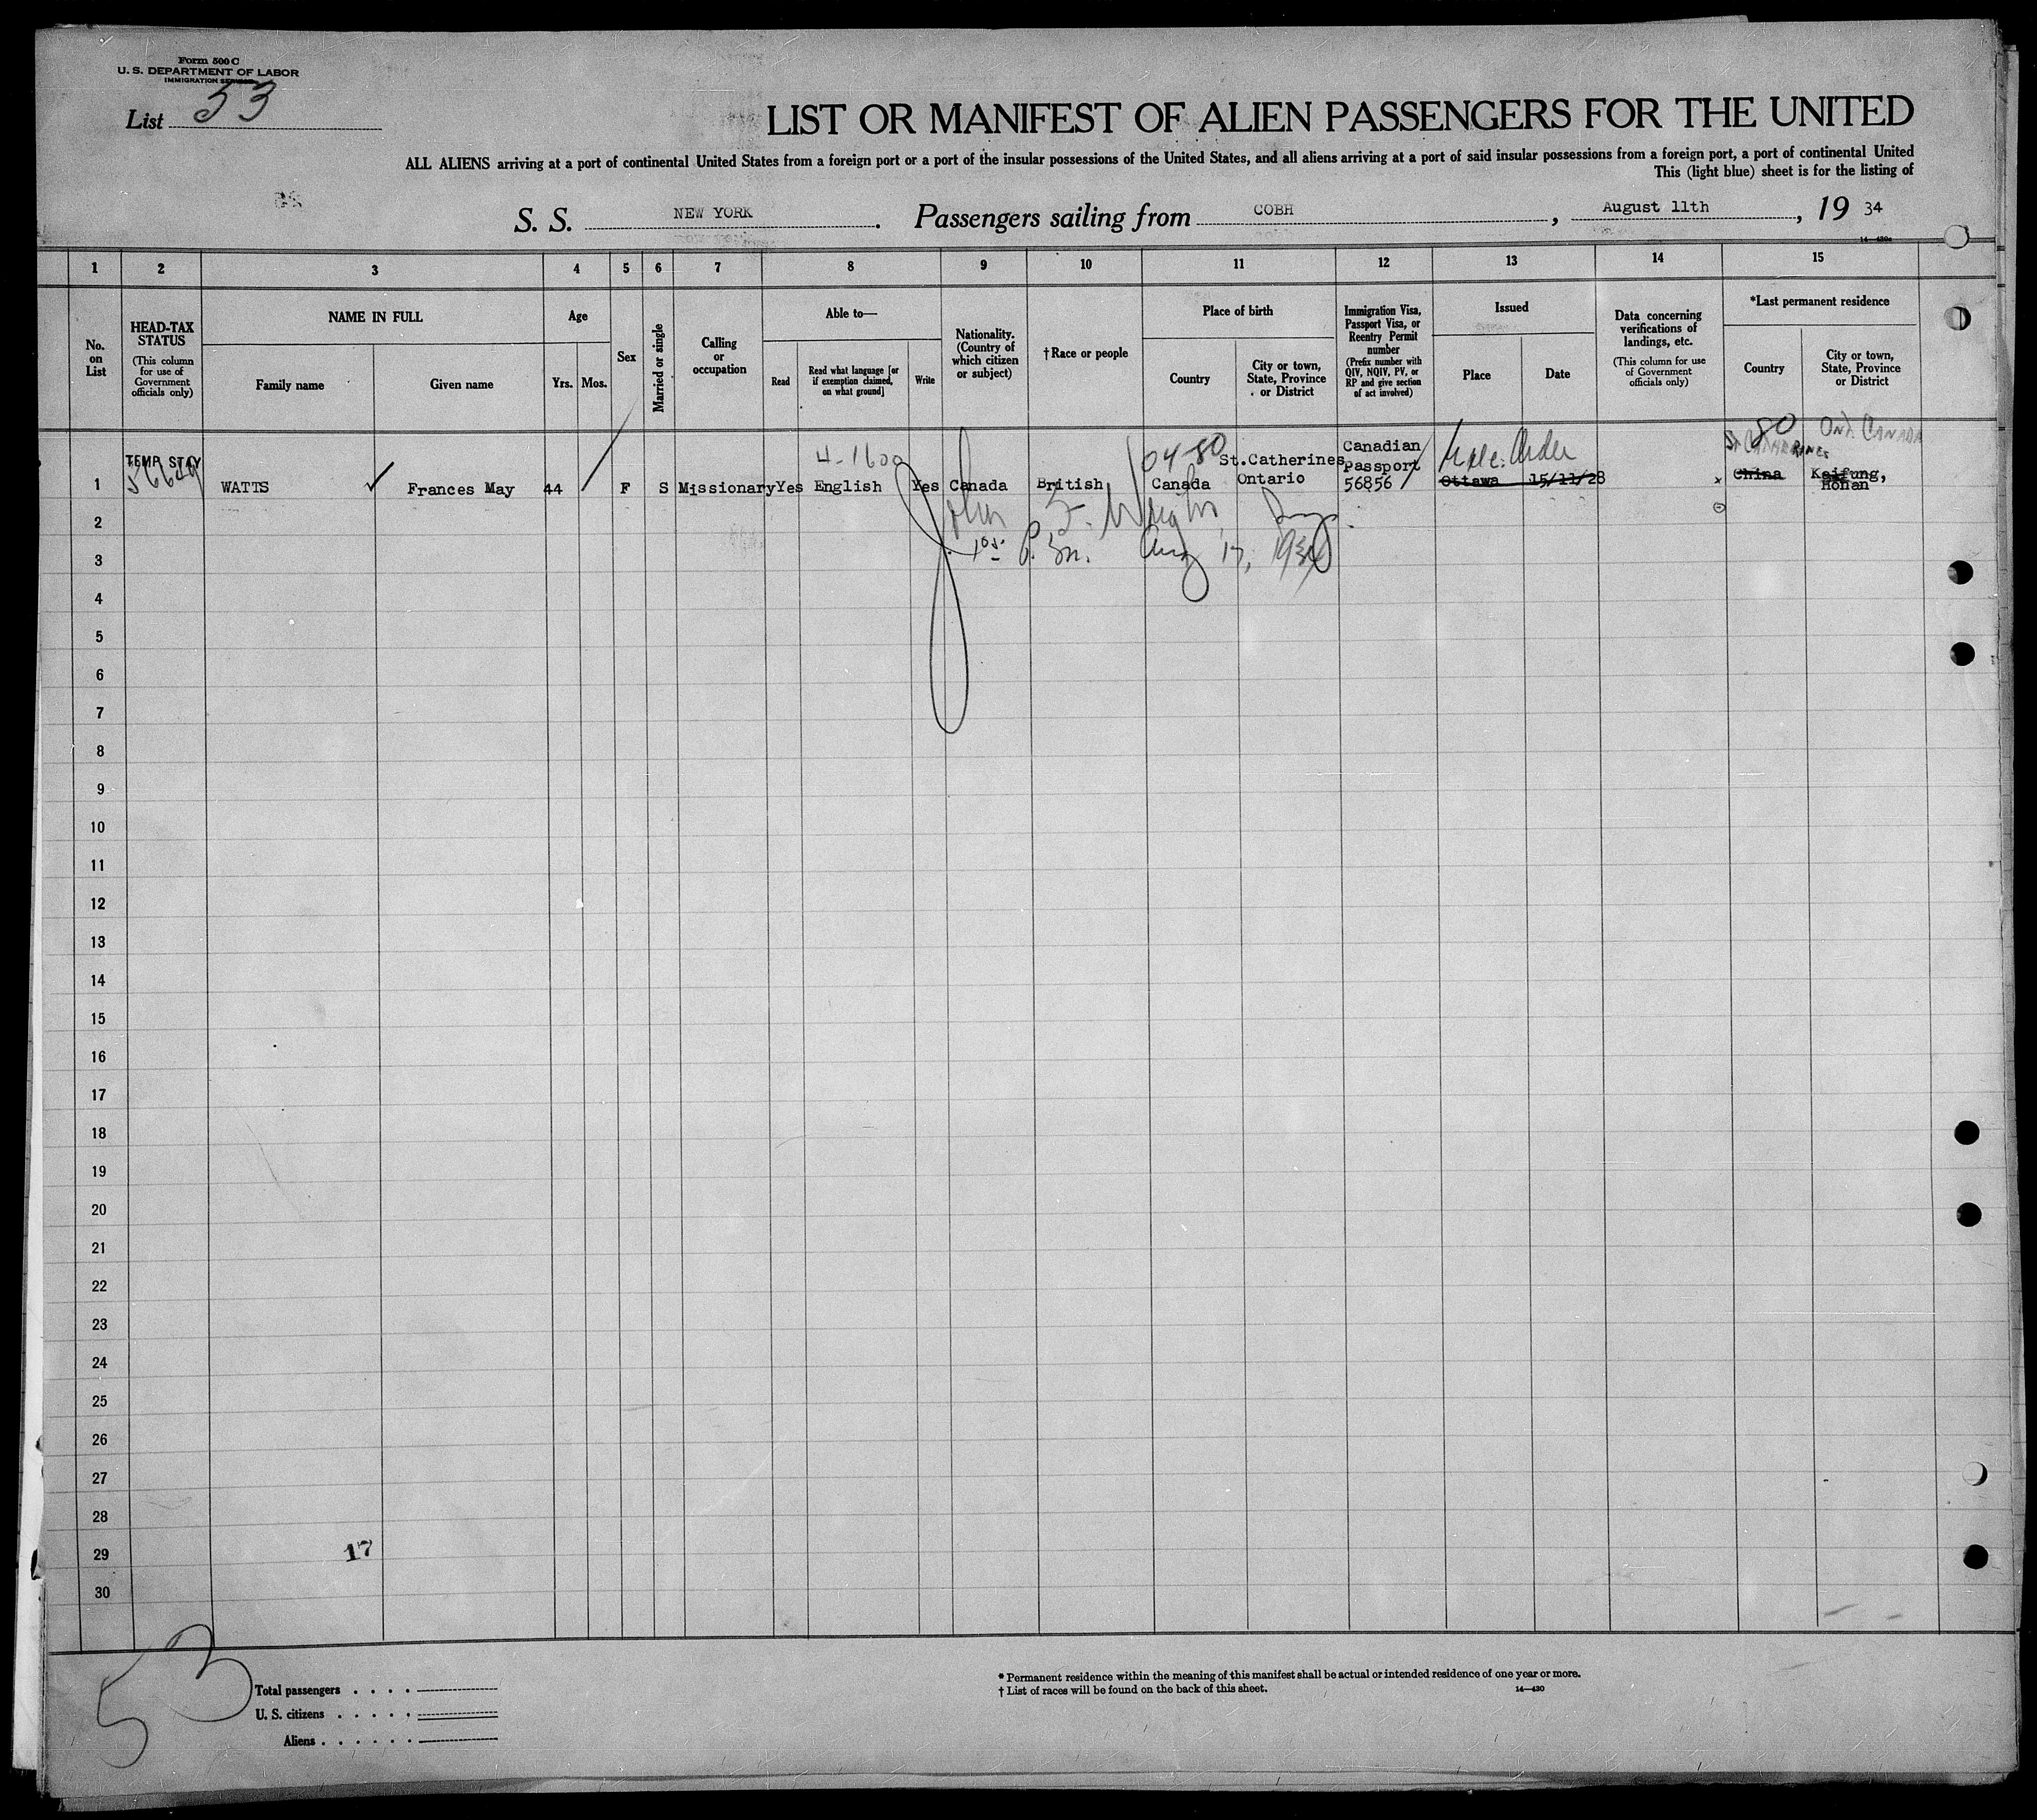 Form 500 C
U. S. DEPARTMENT OF LABOR
IMMIGRATION SERVICE
List 53
LIST OR MANIFEST OF ALIEN PASSENGERS FOR THE UNITED
ALL ALIENS arriving at a port of continental United States from a foreign port or a port of the insular possessions of the United States, and all aliens arriving at a port of said insular possessions from a foreign port, a port of continental United
This (light blue) sheet is for the listing of
S. S. NEW YORK. Passengers sailing from COBH, August 11th, 19 34
14—430a
1 2 3 4 5 6 7 8 9 10 11 12 13 14 15
No. on List
HEAD-TAX STATUS
(This column for use of Government officials only)
NAME IN FULL
Family name
Given name
Age
Yrs. Mos.
Sex
Married or single
Calling or occupation
Able to—
Read
Read what language [or if exemption claimed, on what ground]
Write
Nationality. (Country of which citizen or subject)
†Race or people
Place of birth
Country
City or town, State, Province or District
Immigration Visa, Passport Visa, or Reentry Permit number
(Prefix number with QIV, NQIV, PV, or RP and give section of act involved)
Issued
Place
Date
Data concerning verifications of landings, etc.
(This column for use of Government officials only)
*Last permanent residence
Country
City or town, State, Province or District
80 Ont. CANADA
St CATHERINES
TEMP STAY 4-1600 04-80 St.Catherines Canadian Passport Order
1 56649 WATTS Frances May 44 F S Missionary Yes English Yes Canada British Canada Ontario 56856 Ottawa 15/11/28 x China Kaifung,
Honan
2 John
3 Aug 17, 1934
4
5
6
7
8
9
10
11
12
13
14
15
16
17
18
19
20
21
22
23
24
25
26
27
28
29 17
30
53
Total passengers . . . .
U. S. citizens . . . . .
Aliens . . . . . .
* Permanent residence within the meaning of this manifest shall be actual or intended residence of one year or more.
† List of races will be found on the back of this sheet.
14—430